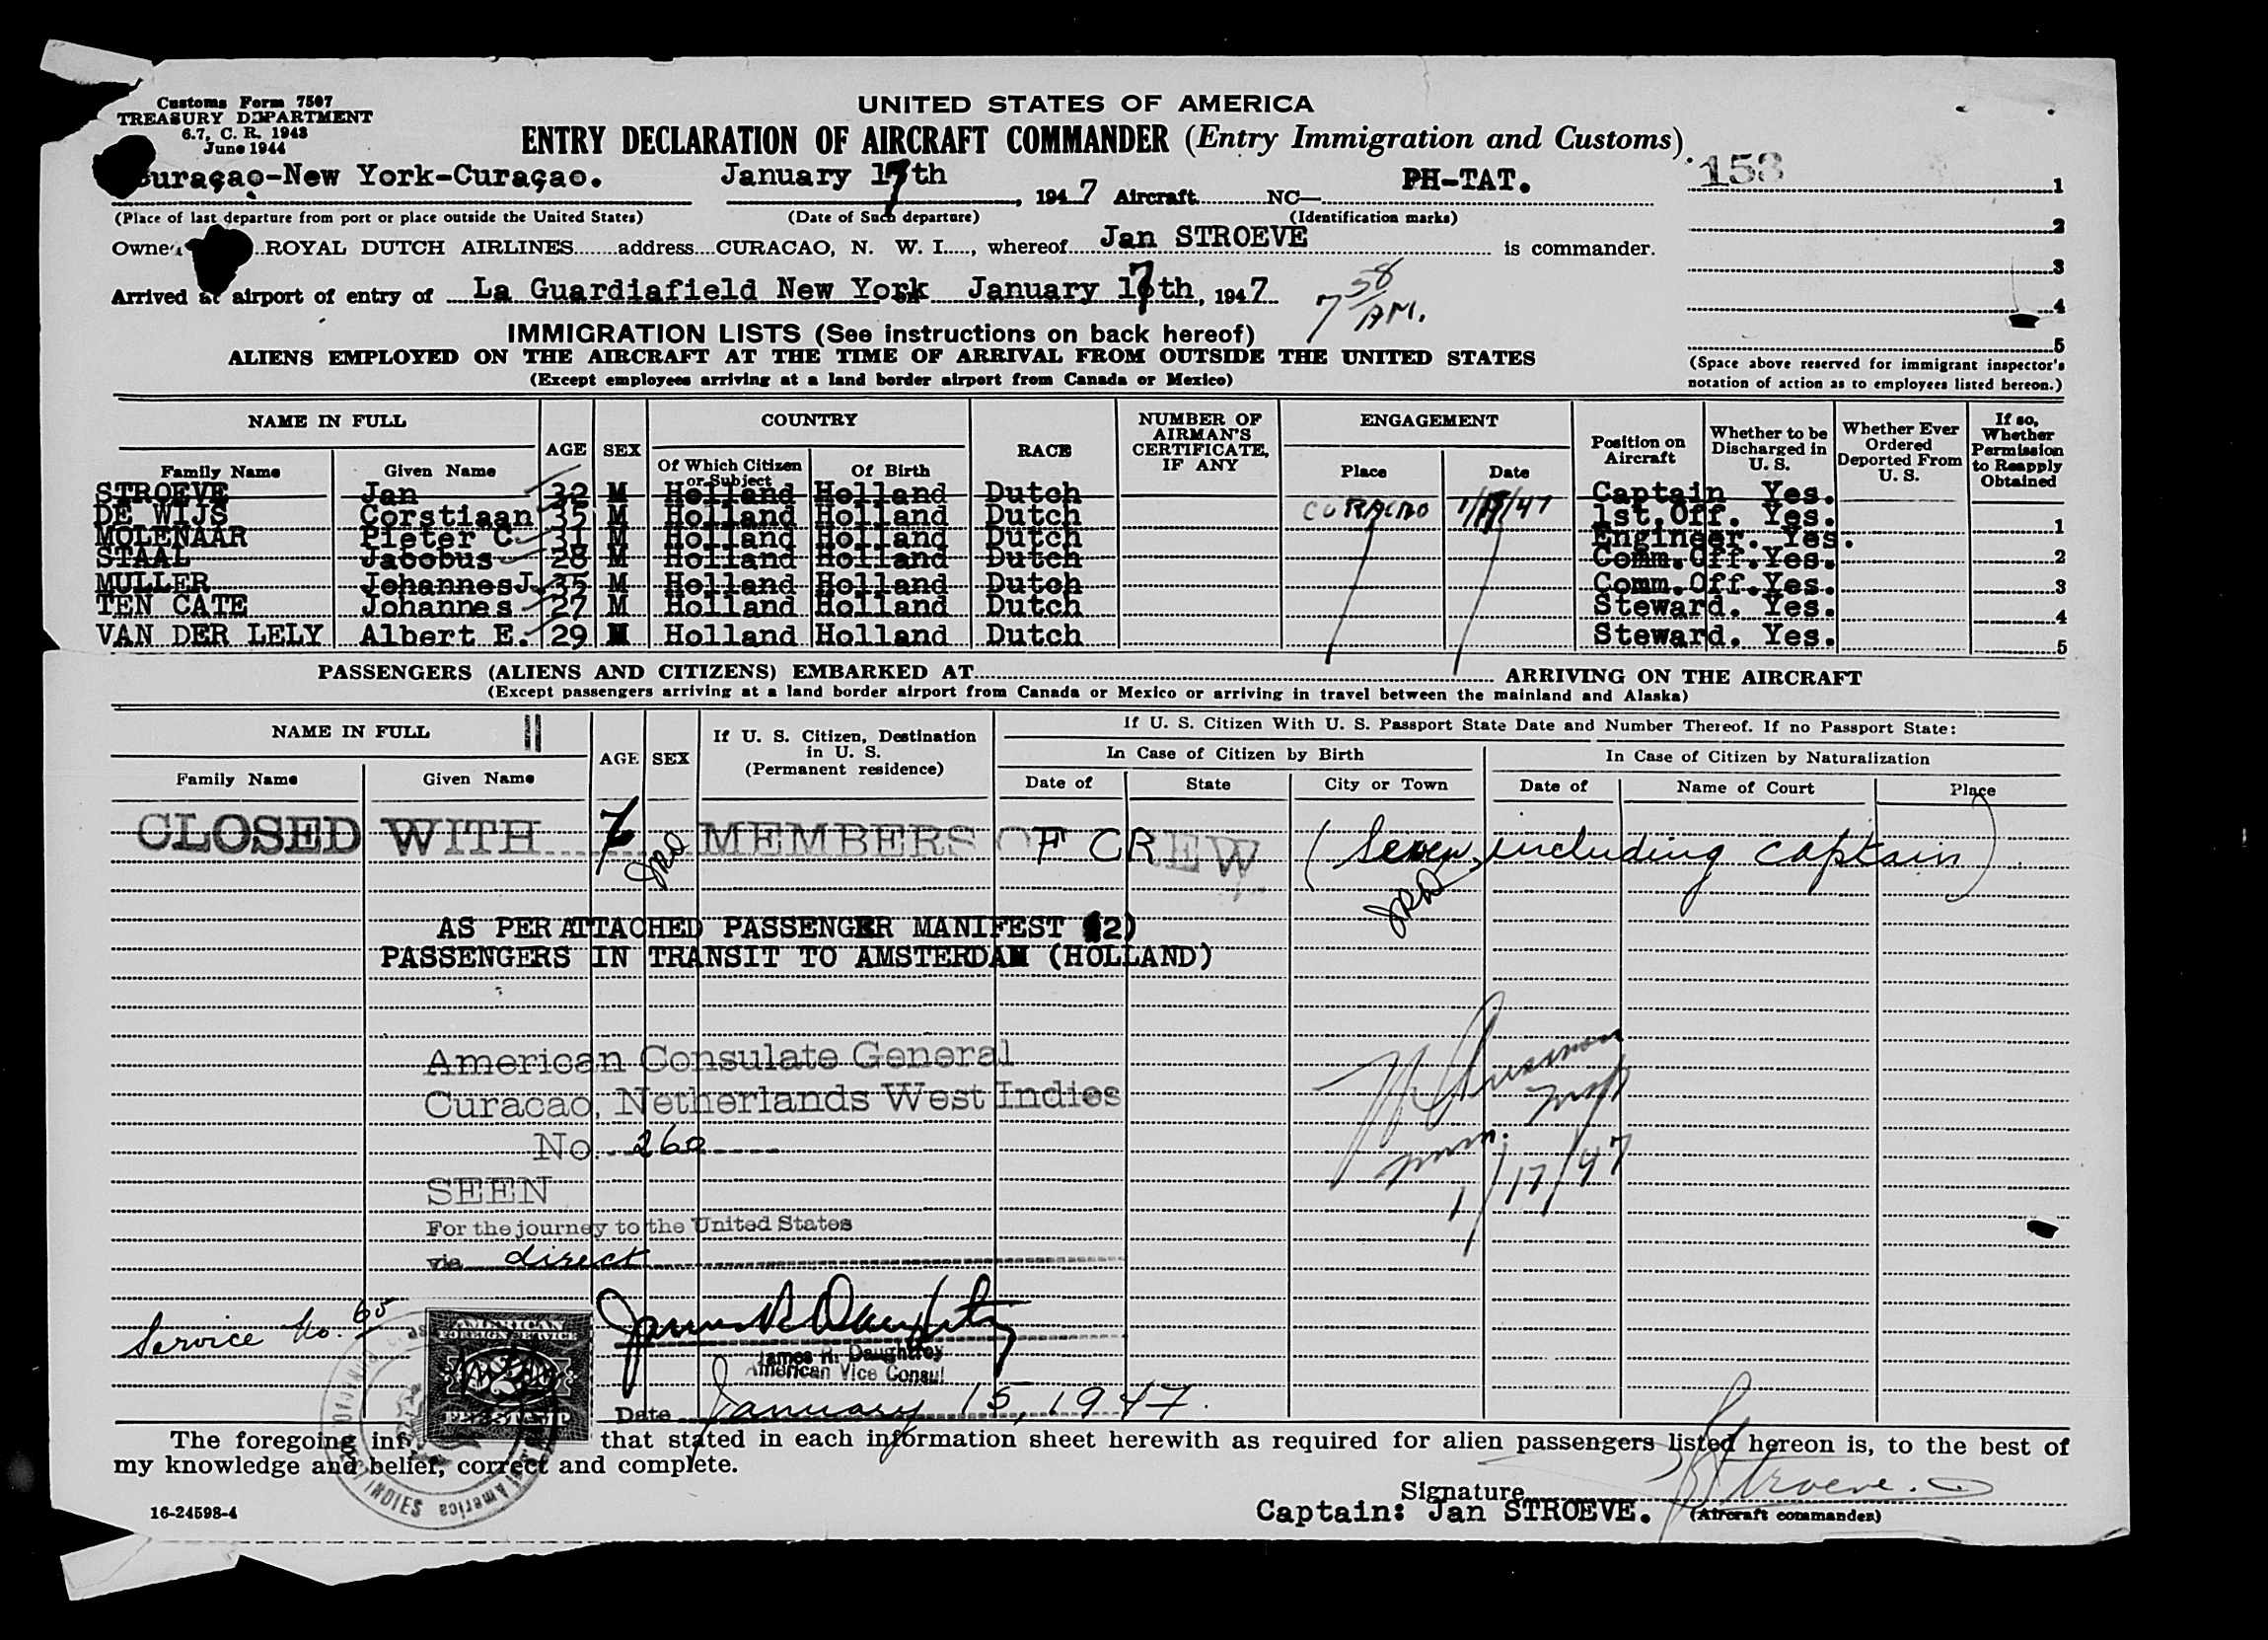 Customs Form 7507
TREASURY DEPARTMENT
6.7, C. R. 1943
June 1944
UNITED STATES OF AMERICA
ENTRY DECLARATION OF AIRCRAFT COMMANDER (Entry Immigration and Customs)
153
uraçao-New York-Curaçao. January 17th, 1947 Aircraft NC— PH-TAT. 1
(Place of last departure from port or place outside the United States) (Date of Such departure) (Identification marks)
2
Owner ROYAL DUTCH AIRLINES address CURACAO, N. W. I., whereof Jan STROEVE is commander.
3
Arrived at airport of entry of La Guardiafield New York January 17th, 1947 7 58 AM.
4
5
IMMIGRATION LISTS (See instructions on back hereof)
ALIENS EMPLOYED ON THE AIRCRAFT AT THE TIME OF ARRIVAL FROM OUTSIDE THE UNITED STATES
(Except employees arriving at a land border airport from Canada or Mexico)
(Space above reserved for immigrant inspector's
notation of action as to employees listed hereon.)
NAME IN FULL AGE SEX COUNTRY RACE NUMBER OF AIRMAN'S CERTIFICATE, IF ANY ENGAGEMENT Position on Aircraft Whether to be Discharged in U. S. Whether Ever Ordered Deported From U. S. If so, Whether Permission to Reapply Obtained
Family Name Given Name Of Which Citizen or Subject Of Birth Place Date
STROEVE Jan 32 M Holland Holland Dutch Captain Yes.
DE WIJS Corstiaan 35 M Holland Holland Dutch CURACAO 1/17/47 1st.Off. Yes. 1
MOLENAAR Pieter C. 31 M Holland Holland Dutch Engineer. Yes.
STAAL Jacobus 28 M Holland Holland Dutch Comm.Off.Yes. 2
MULLER JohannesJ. 35 M Holland Holland Dutch Comm.Off.Yes. 3
TEN CATE Johannes 27 M Holland Holland Dutch Steward. Yes. 4
VAN DER LELY Albert E. 29 M Holland Holland Dutch Steward. Yes. 5
PASSENGERS (ALIENS AND CITIZENS) EMBARKED AT ARRIVING ON THE AIRCRAFT
(Except passengers arriving at a land border airport from Canada or Mexico or arriving in travel between the mainland and Alaska)
NAME IN FULL AGE SEX If U. S. Citizen, Destination in U. S. (Permanent residence) If U. S. Citizen With U. S. Passport State Date and Number Thereof. If no Passport State:
In Case of Citizen by Birth In Case of Citizen by Naturalization
Family Name Given Name Date of State City or Town Date of Name of Court Place
CLOSED WITH 7 MEMBERS OF CREW (Seven, including captain)
JRD JRD
AS PER ATTACHED PASSENGER MANIFEST (2)
PASSENGERS IN TRANSIT TO AMSTERDAM (HOLLAND)
American Consulate General
Curacao, Netherlands West Indies
No. 260
1/17/47
SEEN
For the journey to the United States
via direct
Service No. 65
AMERICAN
FOREIGN SERVICE
FEE STAMP
James R. Daughtrey
James R. Daughtrey
American Vice Consul
Date January 15, 1947.
The foregoing inf that stated in each information sheet herewith as required for alien passengers listed hereon is, to the best of
my knowledge and belief, correct and complete.
Signature J Stroeve.
Captain: Jan STROEVE. (Aircraft commander)
16-24598-4